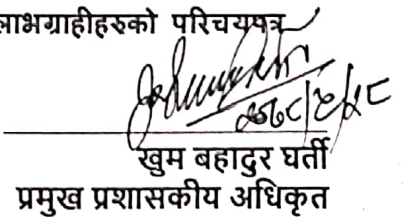 लाभग्राहीहरुको परिचयपत्र
खुम बहादुर घर्ती
प्रमुख प्रशासकीय अधिकृत